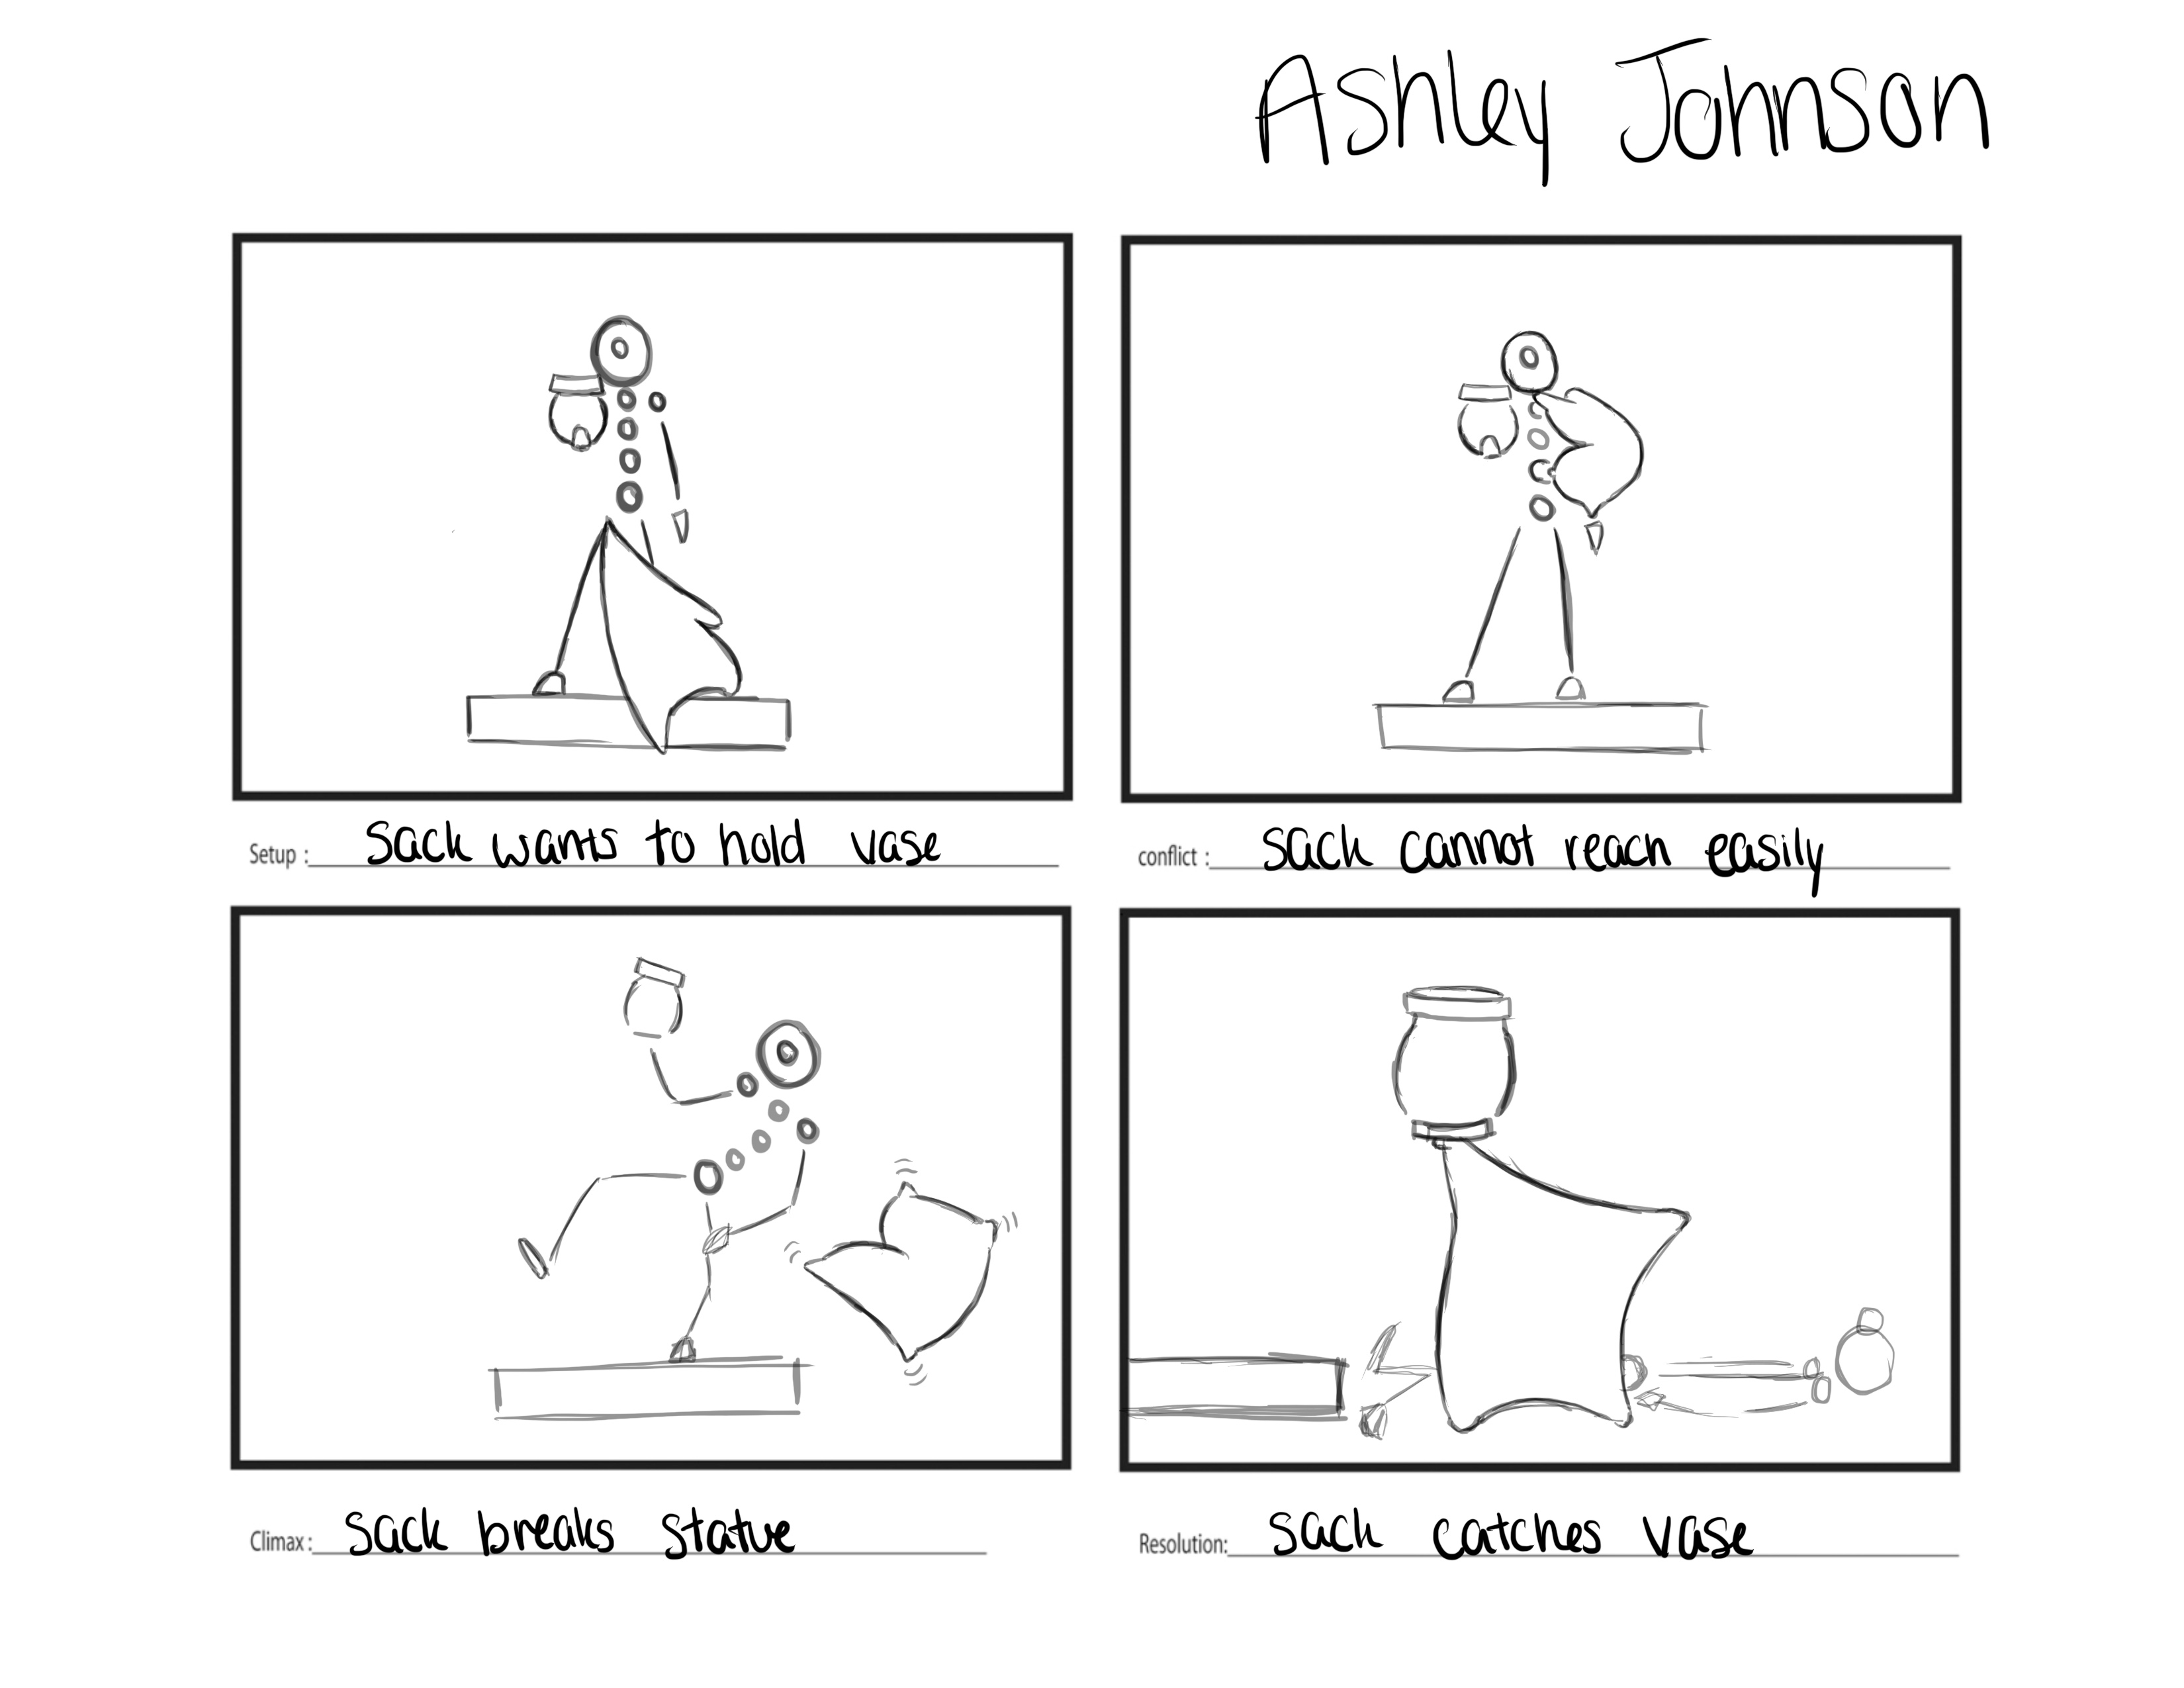 Ashley Johnson
Setup : Sack wants to hold vase
conflict : Sack cannot reach easily
Climax : Sack breaks statue
Resolution: Sack catches vase